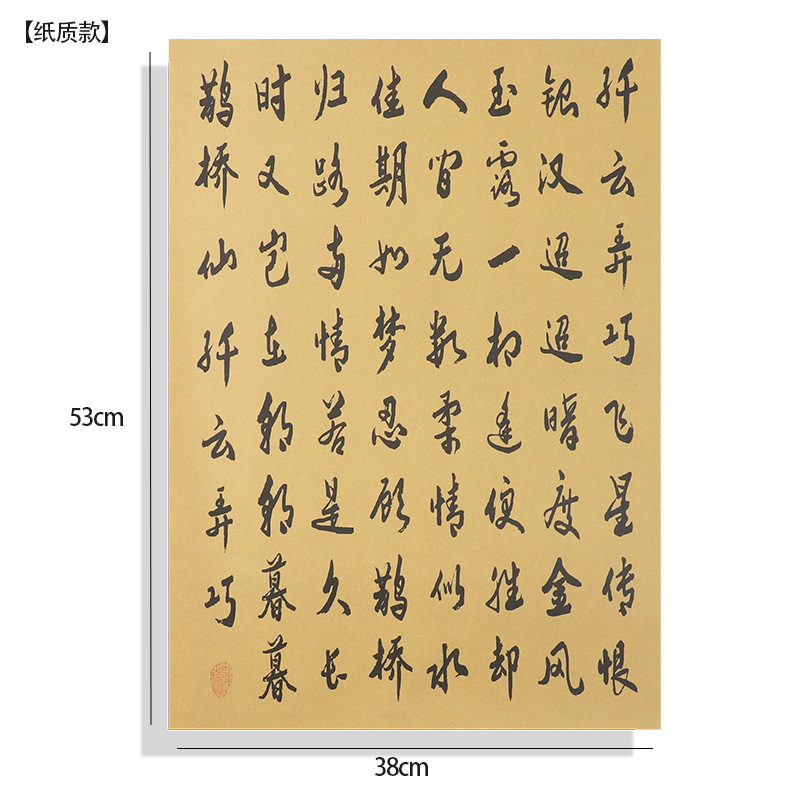 【纸质款】
纤云弄巧飞星传恨
银汉迢迢暗度金风
玉露一相逢便胜却
人间无数柔情似水
佳期如梦忍顾鹊桥
归路两情若是久长
时又岂在朝朝暮暮
鹊桥仙纤云弄巧
53cm
38cm